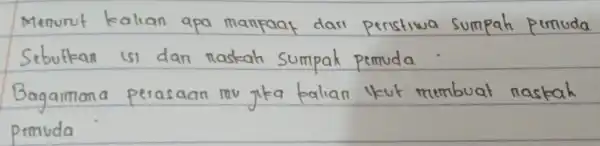 Menurut kalian apa manfaat dari peristiwa sumpah pemuda
Sebutkan isi dan naskah sumpah pemuda .
Bagaimana perasaan mu jika kalian ikut membuat naskah
pemuda